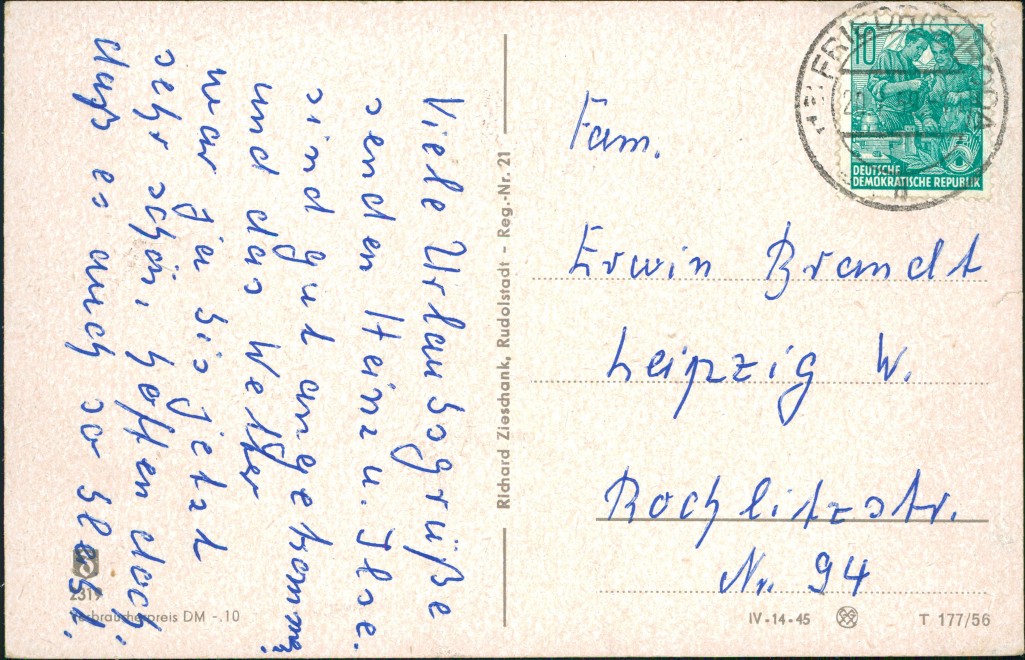 Viele Urlaubsgrüße
senden Heinz u. Ilse.
sind gut angekommen
und das Wetter
war ja bis jetzt
sehr schön, hoffen doch
daß es auch so bleibt.
2319
Verbraucherpreis DM -.10
Richard Zieschank, Rudolstadt - Reg.-Nr. 21
10
DEUTSCHE
DEMOKRATISCHE REPUBLIK
Fam.
Erwin Brandt
Leipzig W.
Rochlitzstr.
Nr. 94
IV-14-45
T 177/56